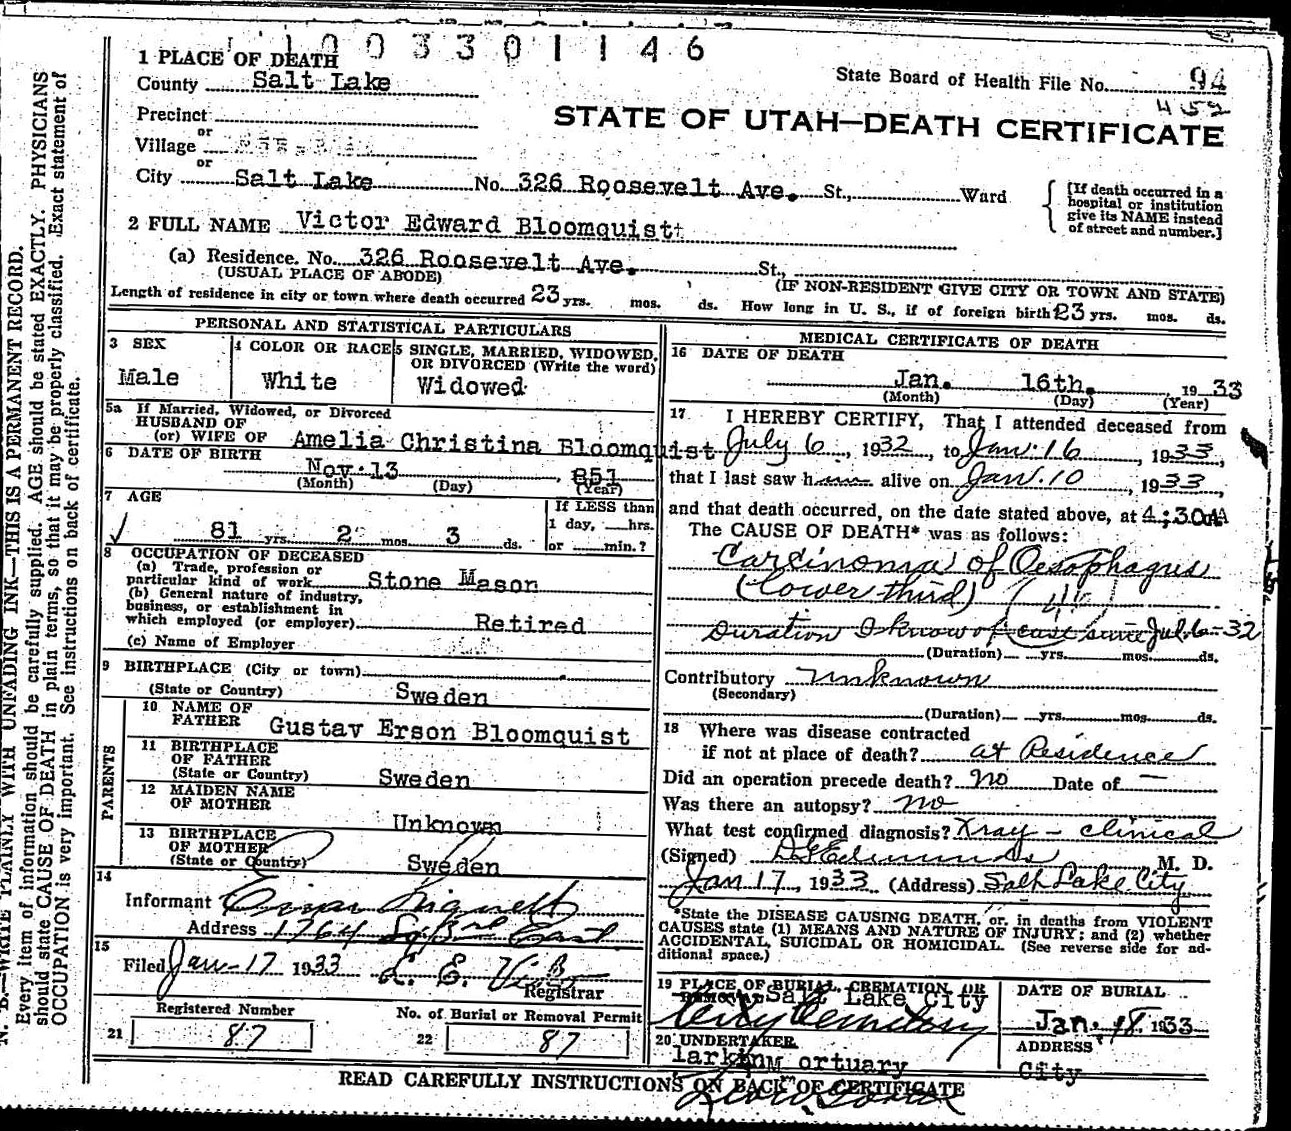 1003301146
1 PLACE OF DEATH
County Salt Lake
State Board of Health File No. 94
452
Precinct
or
Village
or
STATE OF UTAH—DEATH CERTIFICATE
City Salt Lake No. 326 Roosevelt Ave. St., Ward
[If death occurred in a
hospital or institution
give its NAME instead
of street and number.]
2 FULL NAME Victor Edward Bloomquist
(a) Residence. No. 326 Roosevelt Ave. St.,
(USUAL PLACE OF ABODE) (IF NON-RESIDENT GIVE CITY OR TOWN AND STATE)
Length of residence in city or town where death occurred 23 yrs. mos. ds. How long in U. S., if of foreign birth 23 yrs. mos. ds.
PERSONAL AND STATISTICAL PARTICULARS
3 SEX
Male
4 COLOR OR RACE
White
5 SINGLE, MARRIED, WIDOWED,
OR DIVORCED (Write the word)
Widowed
5a If Married, Widowed, or Divorced
HUSBAND OF
(or) WIFE OF Amelia Christina Bloomquist
6 DATE OF BIRTH
Nov. 13, 851
(Month) (Day) (Year)
7 AGE
81 yrs. 2 mos. 3 ds.
If LESS than
1 day, hrs.
or min.?
8 OCCUPATION OF DECEASED
(a) Trade, profession or
particular kind of work Stone Mason
(b) General nature of industry,
business, or establishment in
which employed (or employer) Retired
(c) Name of Employer
9 BIRTHPLACE (City or town)
(State or Country) Sweden
PARENTS
10 NAME OF
FATHER Gustav Erson Bloomquist
11 BIRTHPLACE
OF FATHER
(State or Country) Sweden
12 MAIDEN NAME
OF MOTHER
Unknown
13 BIRTHPLACE
OF MOTHER
(State or Country) Sweden
14
Informant
Address 1764 So. 3rd East
15
Filed Jan-17 1933
Registrar
Registered Number
21 87
No. of Burial or Removal Permit
22 87
MEDICAL CERTIFICATE OF DEATH
16 DATE OF DEATH
Jan. 16th. 1933
(Month) (Day) (Year)
17 I HEREBY CERTIFY, That I attended deceased from
July 6, 1932, to Jan. 16, 1933,
that I last saw him alive on Jan. 10, 1933,
and that death occurred, on the date stated above, at 4:30 AM
The CAUSE OF DEATH* was as follows:
Carcinoma of Oesophagus
(Lower third)
Duration I know of case since Jul. 6-32
(Duration) yrs. mos. ds.
Contributory Unknown
(Secondary)
(Duration) yrs. mos. ds.
18 Where was disease contracted
if not at place of death? at Residence
Did an operation precede death? no Date of —
Was there an autopsy? no
What test confirmed diagnosis? Xray - clinical
(Signed) M. D.
Jan 17, 1933 (Address) Salt Lake City
*State the DISEASE CAUSING DEATH, or, in deaths from VIOLENT
CAUSES state (1) MEANS AND NATURE OF INJURY; and (2) whether
ACCIDENTAL, SUICIDAL OR HOMICIDAL. (See reverse side for ad-
ditional space.)
19 PLACE OF BURIAL, CREMATION, OR
REMOVAL Salt Lake City
City Cemetery
DATE OF BURIAL
Jan. 18, 1933
20 UNDERTAKER
larkin Mortuary
ADDRESS
City
READ CAREFULLY INSTRUCTIONS ON BACK OF CERTIFICATE
N. B.—WRITE PLAINLY WITH UNFADING INK—THIS IS A PERMANENT RECORD.
Every item of information should be carefully supplied. AGE should be stated EXACTLY. PHYSICIANS
should state CAUSE OF DEATH in plain terms, so that it may be properly classified. Exact statement of
OCCUPATION is very important. See instructions on back of certificate.